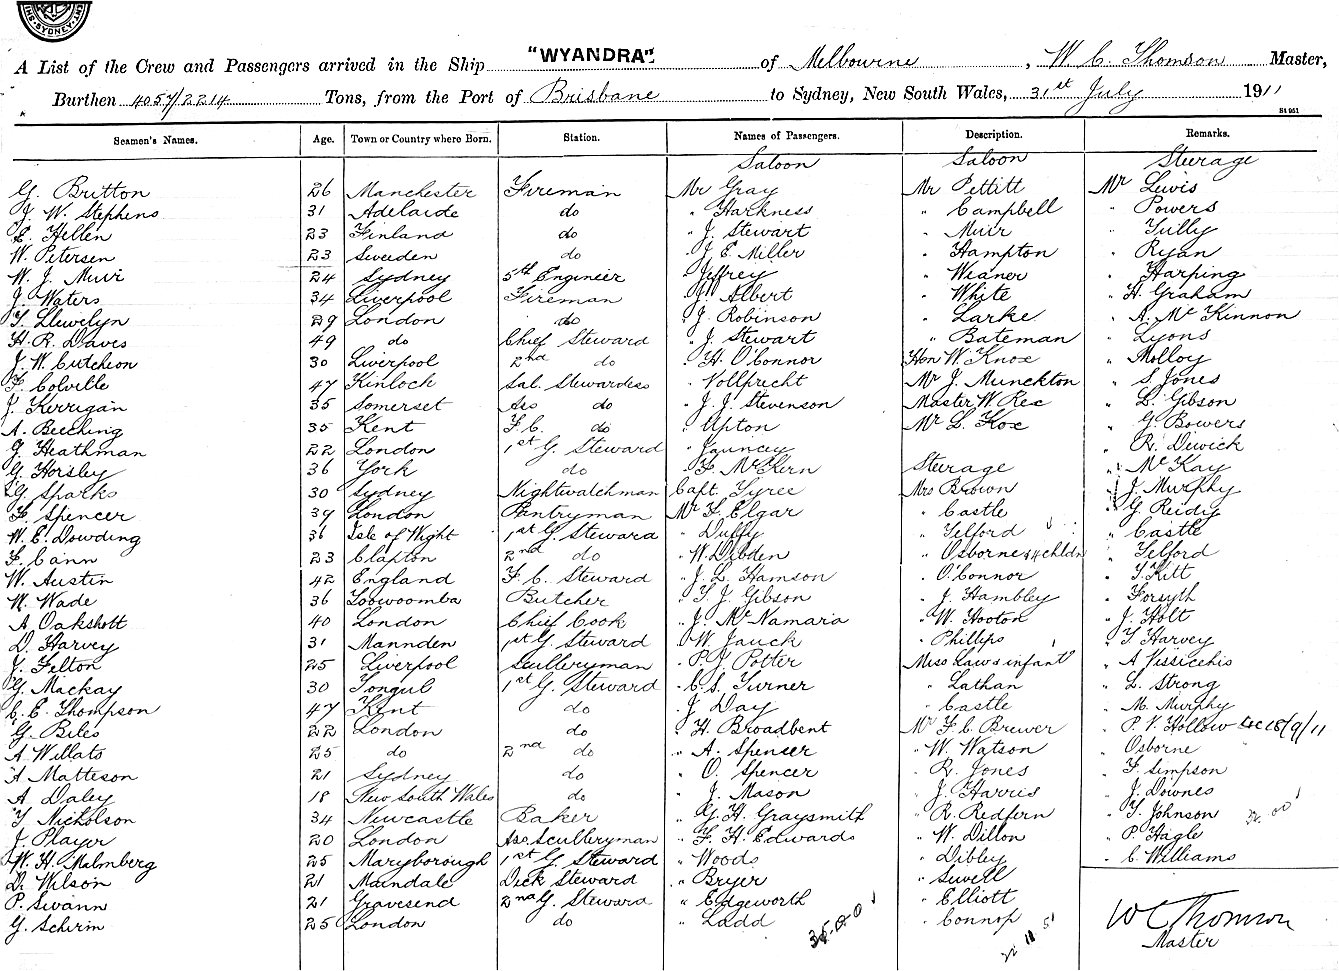 SYDNEY
A List of the Crew and Passengers arrived in the Ship "WYANDRA" of Melbourne, W. C. Thomson Master,
Burthen 4057/2214 Tons, from the Port of Brisbane to Sydney, New South Wales, 31st July 1911
St 951
Seamen's Names. Age. Town or Country where Born. Station. Names of Passengers. Description. Remarks.
Saloon Saloon Steerage
G. Britton 26 Manchester Fireman Mr Gray Mr Pettitt Mr Lewis
J. W. Stephens 31 Adelaide do " Harkness " Campbell " Powers
E. Hellen 23 Finland do " J. Stewart " Muir " Tully
W. Petersen 23 Sweden do " J. E. Miller " Hampton " Ryan
W. J. Muir 24 Sydney 5th Engineer " Jeffrey " Weaner " Harping
J. Waters 34 Liverpool Fireman " J. Albert " White " H. Graham
T. Llewelyn 29 London do " J. Robinson " Larke " A. McKinnon
H. R. Davis 49 do Chief Steward " J. Stewart " Bateman " Lyons
J. W. Cutcheon 30 Liverpool 2nd do " H. O'Connor Hon W. Knox " Molloy
F. Colville 47 Kinloch Sal. Stewardess " Vollprecht Mr J. Munckton " S. Jones
J. Kerrigan 35 Somerset Ass do " J. J. Stevenson Master W Rex " L. Gibson
A. Beeching 35 Kent F. C. do " Upton Mr L. Kox " G. Bowers
G. Heathman 22 London 1st G. Steward " Jauncey " R. Dewick
G. Horsley 36 York do " F. McKern Steerage " McKay
G. Sparks 30 Sydney Nightwatchman Capt. Tyree Mrs Brown " J. Murphy
F. Spencer 39 London Pantryman Mr F. Elgar " Castle " G. Reidy
W. E. Dowding 36 Isle of Wight 1st G. Steward " Duffy " Telford " Castle
F. Cann 23 Clapton 2nd do " W. Dibden " Osborne & 4 chldn " Telford
W. Austin 42 England F. C. Steward " J. L. Hamson " O'Connor " T. Kitt
W. Wade 36 Toowoomba Butcher " T. J. Gibson " J. Hambley " Forsyth
A. Oakshott 40 London Chief Cook " J. McNamara " W. Hooton " J. Holt
D. Harvey 31 Mannden 1st G. Steward " W. Jauck " Phillips " T Harvey
J. Felton 25 Liverpool Sculleryman " P. J. Potter Miss Law & infant " A Vissicchis
G. Mackay 30 Tongue 1st G. Steward " C. S. Turner " Lathan " L. Strong
C. E. Thompson 47 Kent do " J. Day " Castle " M. Murphy
G. Biles 22 London do " H. Broadbent Mr F. C. Brewer " P. V. Hollow
A Willats 25 do 2nd do " A. Spenser " W. Watson " Osborne
A Matteson 21 Sydney do " O. Spencer " R. Jones " F. Simpson
A Daley 18 New South Wales do " J. Mason " J. Harris " J. Downes
T Nicholson 34 Newcastle Baker " G. H. Graysmith " R. Redfern " T. Johnson
J. Player 20 London Ass. Sculleryman " F. H. Edwards " W. Dillon " P. Hagle
W. H. Malmberg 25 Maryborough 1st G. Steward " Woods " Dibley " C. Williams
D. Wilson 21 Maindale Deck Steward " Bryer " Sewell
P. Swann 21 Gravesend 2nd G. Steward " Edgeworth " Elliott
G. Schirm 25 London do " Ladd " Connop
W C Thomson
Master